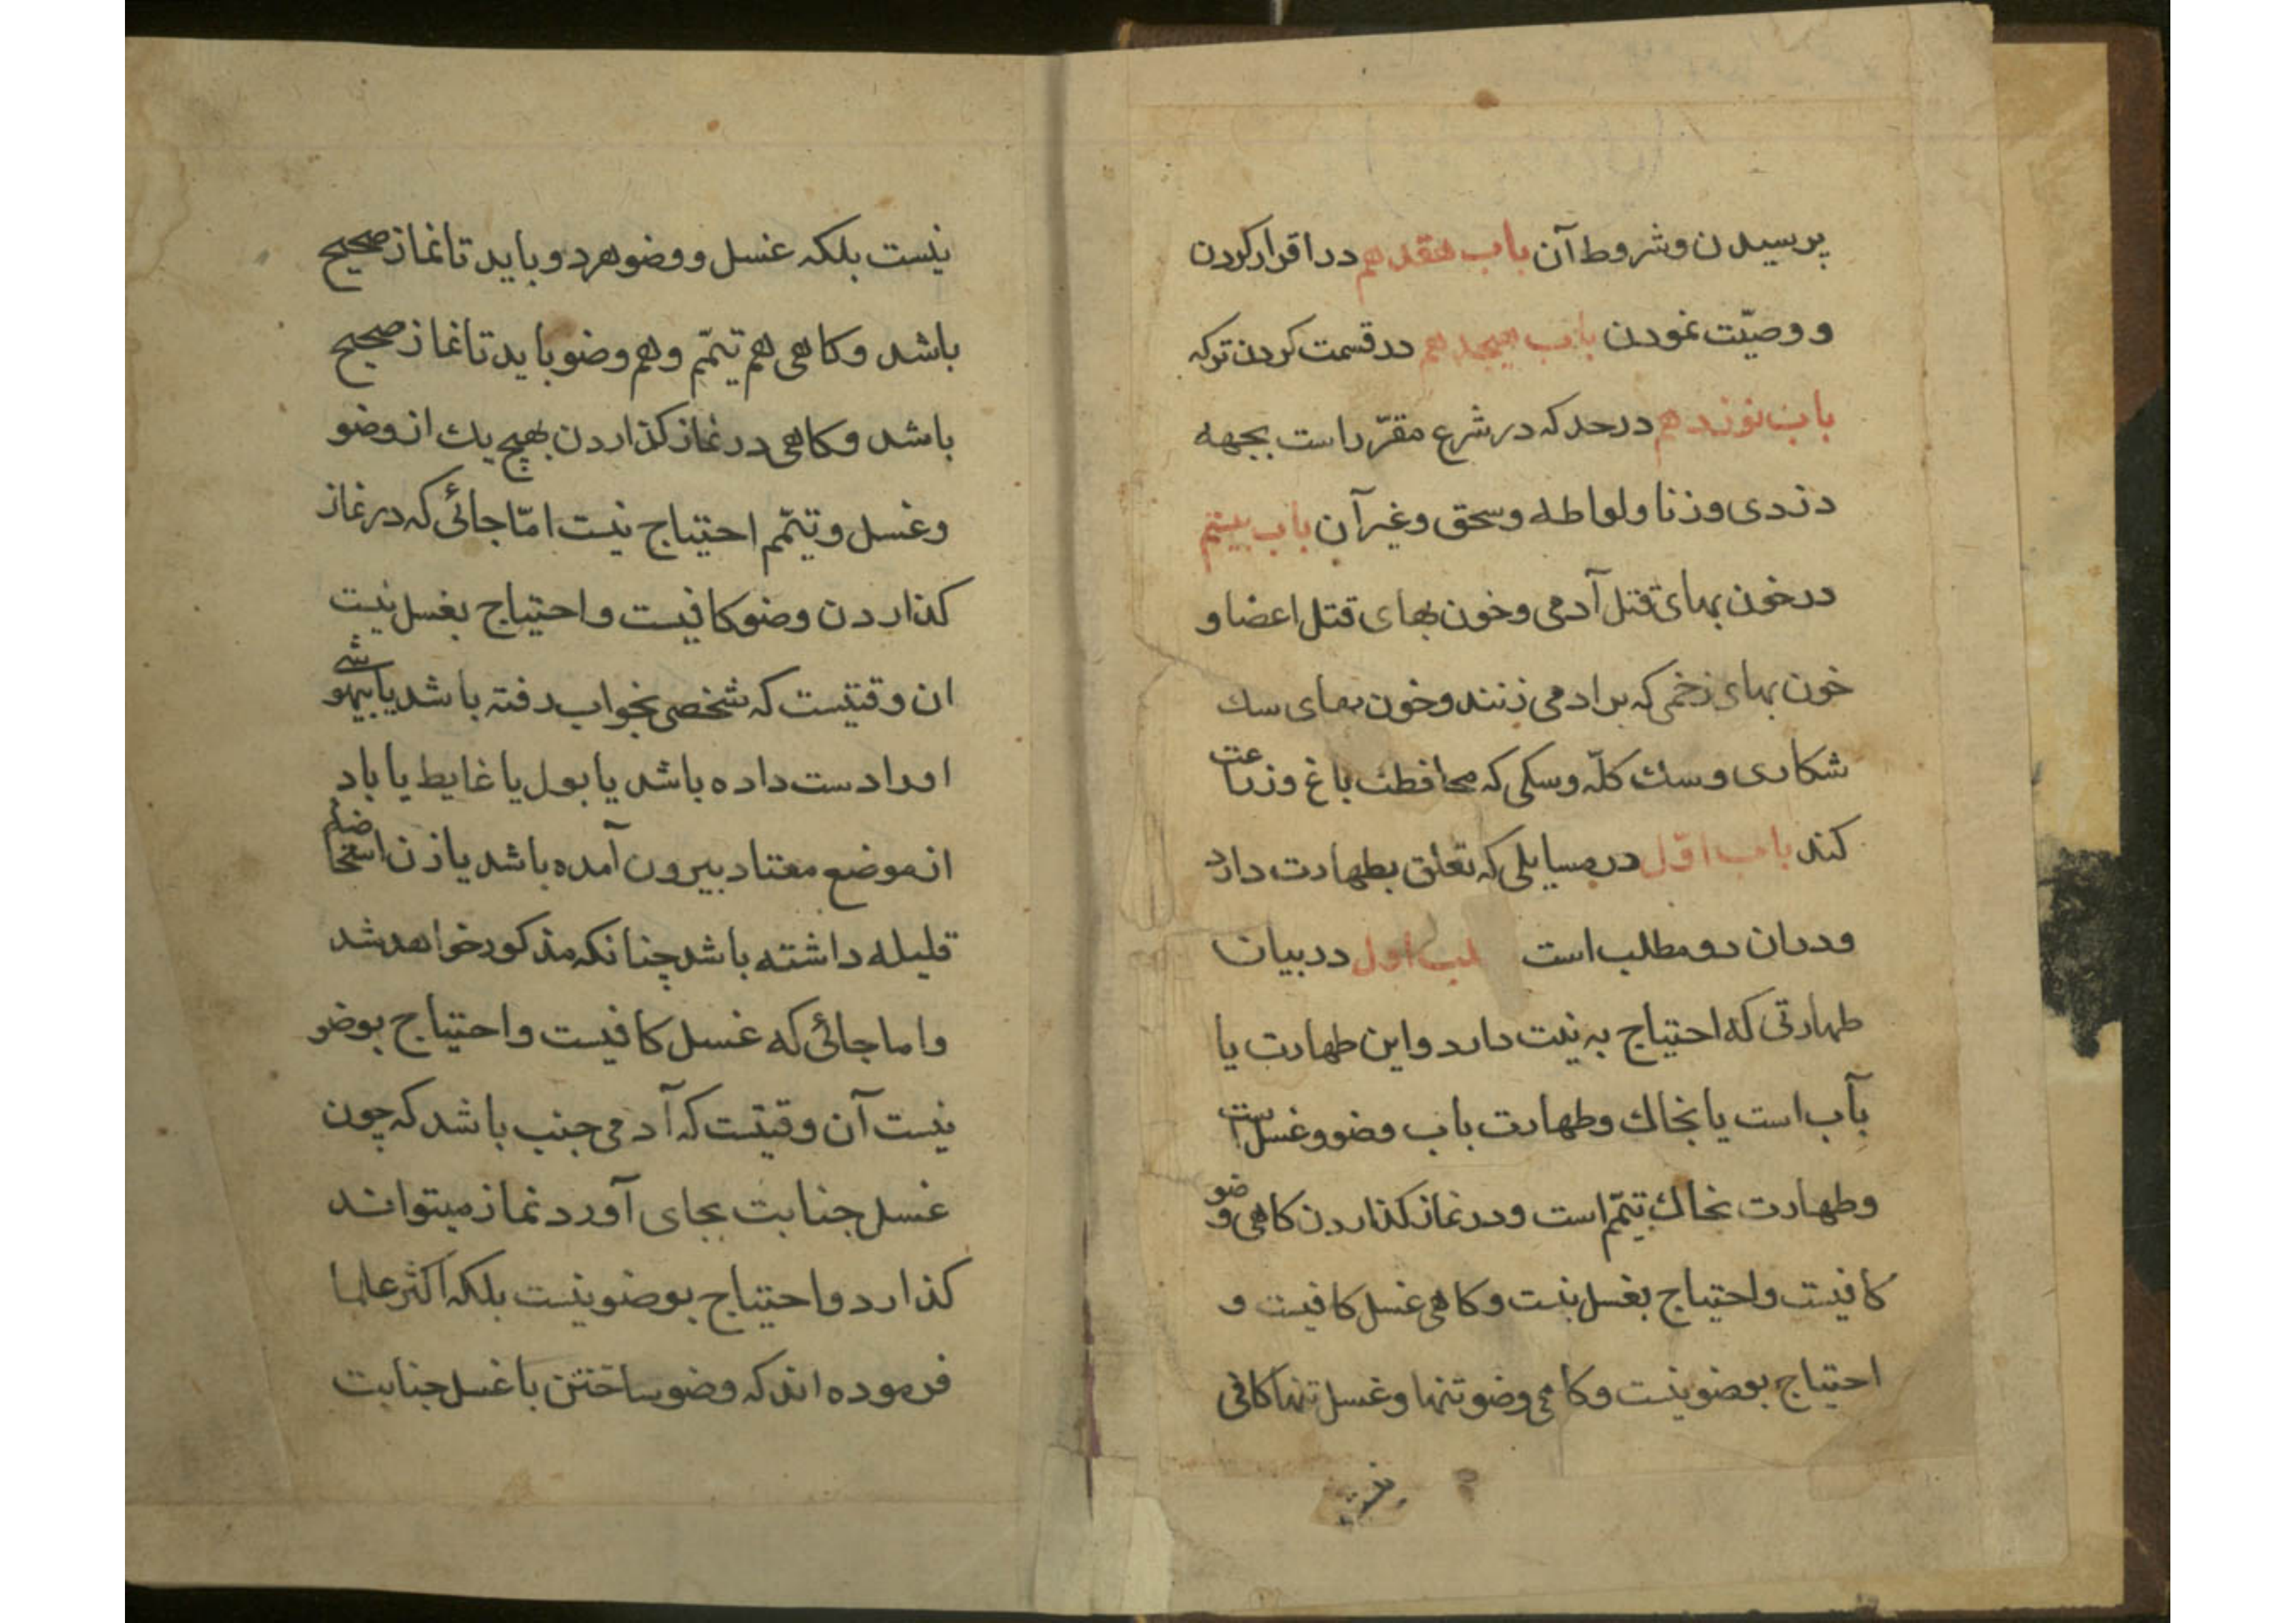 پرسیدن و شروط آن باب هفدهم در اقرار کردن
و وصیّت نمودن باب هیجدهم در قسمت کردن ترکه
باب نوزدهم در حد که در شرع مقرّر است بجهه
دزدی و زنا و لواطه و سحق و غیر آن باب بیستم
در خون بهای قتل آدمی و خون بهای قتل اعضا و
خون بهای زخمی که بر ادمی زنند و خون بهای سك
شکاری و سك کلّه و سکی که محافظت باغ و زراعت
کند باب اوّل در مسایلی که تعلق بطهارت دارد
و در ان دو مطلب است لب اول در بیان
طهارتی که احتیاج به نیت دارد و این طهارت یا
بآب است یا بخاك و طهارت باب وضو و غسل است
و طهارت بخاك تیمّم است و در نماز کذاردن کاهی وضو
کافیست و احتیاج بغسل نیست و کاهی غسل کافیست و
احتیاج بوضو نیست و کاهی وضو تنها و غسل تنها کافی
نیست بلکه غسل و وضو هر دو باید تا نماز صحیح
باشد و کاهی هم تیمّم و هم وضو باید تا نماز صحیح
باشد و کاهی در نماز کذاردن بهیچ یك از وضو
و غسل و تیمّم احتیاج نیست امّا جائی که در نماز
کذاردن وضو کافیست و احتیاج بغسل نیست
ان وقتیست که شخصی بخواب رفته باشد یا بیهوشی
او را دست داده باشد یا بول یا غایط یا باد
از موضع معتاد بیرون آمده باشد یا زن استحاضه
قلیله داشته باشد چنانکه مذکور خواهد شد
و اما جائی که غسل کافیست و احتیاج بوضو
نیست آن وقتیست که آدمی جنب باشد که چون
غسل جنابت بجای آورد نماز میتواند
کذارد و احتیاج بوضو نیست بلکه اکثر علما
فرموده اند که وضو ساختن با غسل جنابت